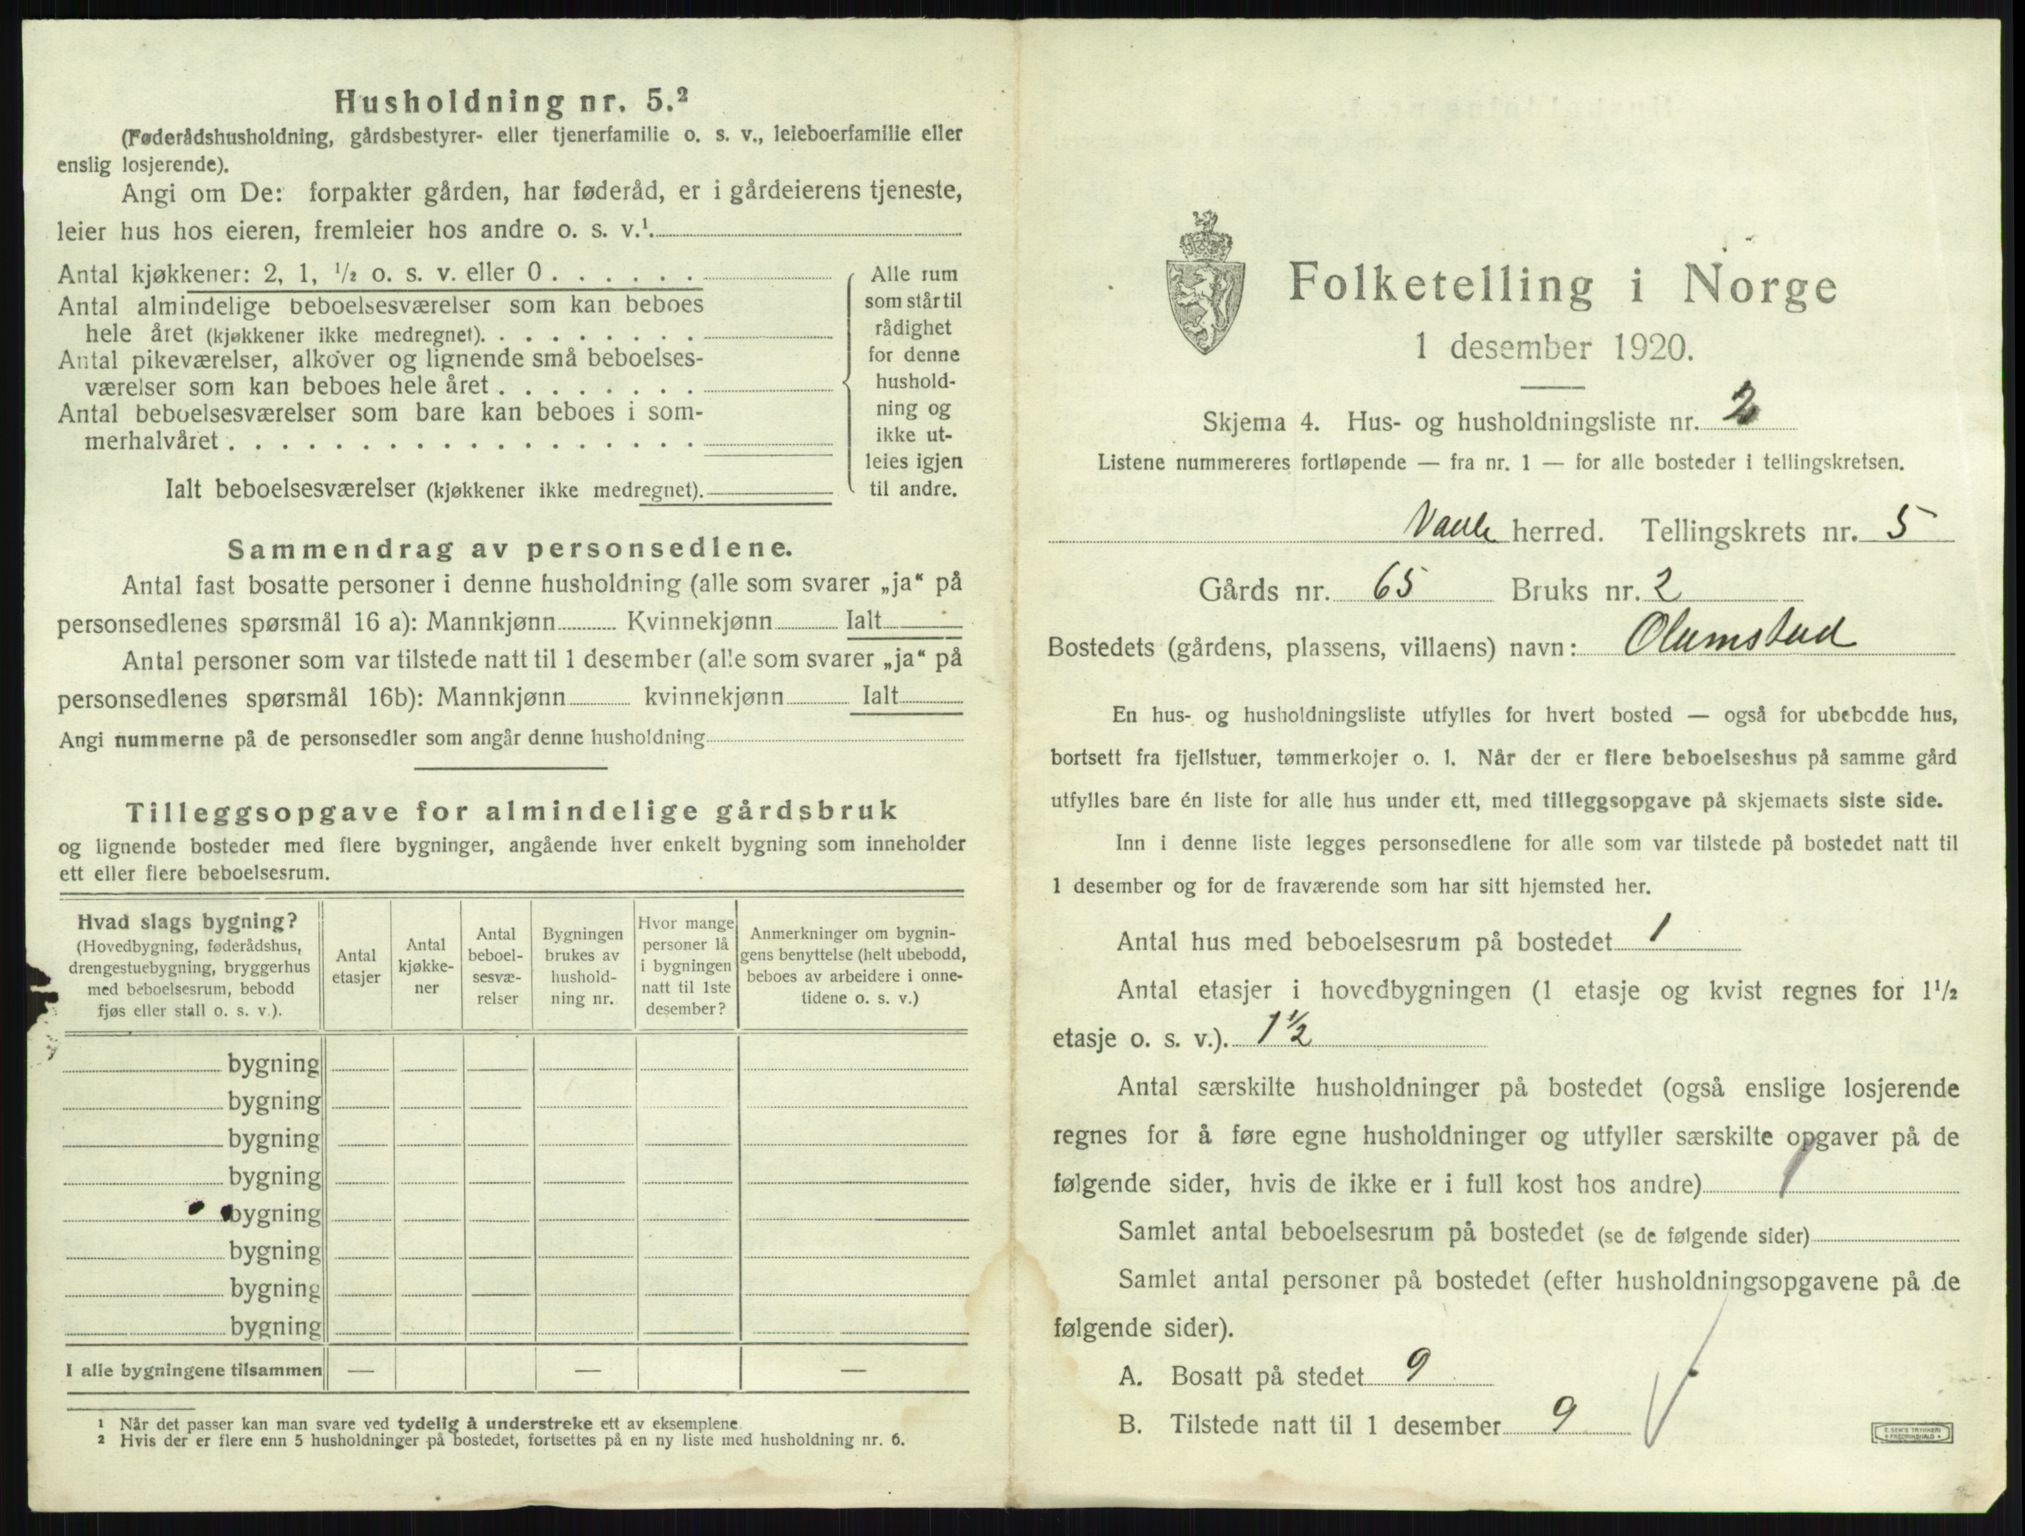 Husholdning nr. 5.²
(Føderådshusholdning, gårdsbestyrer- eller tjenerfamilie o. s. v., leieboerfamilie eller
enslig losjerende).
Angi om De: forpakter gården, har føderåd, er i gårdeierens tjeneste,
leier hus hos eieren, fremleier hos andre o. s. v.¹
Antal kjøkkener: 2, 1, ½ o. s. v. eller 0 . . . . . .
Antal almindelige beboelsesværelser som kan beboes
hele året (kjøkkener ikke medregnet). . . . . . . . .
Antal pikeværelser, alkover og lignende små beboelses-
værelser som kan beboes hele året . . . . . . . .
Antal beboelsesværelser som bare kan beboes i som-
merhalvåret . . . . . . . . . . . . . . . . . .
Ialt beboelsesværelser (kjøkkener ikke medregnet).
Alle rum
som står til
rådighet
for denne
hushold-
ning og
ikke ut-
leies igjen
til andre.
Sammendrag av personsedlene.
Antal fast bosatte personer i denne husholdning (alle som svarer „ja“ på
personsedlenes spørsmål 16 a): Mannkjønn Kvinnekjønn Ialt
Antal personer som var tilstede natt til 1 desember (alle som svarer „ja“ på
personsedlenes spørsmål 16b): Mannkjønn kvinnekjønn Ialt
Angi nummerne på de personsedler som angår denne husholdning
Tilleggsopgave for almindelige gårdsbruk
og lignende bosteder med flere bygninger, angående hver enkelt bygning som inneholder
ett eller flere beboelsesrum.
Hvad slags bygning?
(Hovedbygning, føderådshus,
drengestuebygning, bryggerhus
med beboelsesrum, bebodd
fjøs eller stall o. s. v.).
Antal
etasjer
Antal
kjøkke-
ner
Antal
beboel-
sesvæ-
relser
Bygningen
brukes av
hushold-
ning nr.
Hvor mange
personer lå
i bygningen
natt til 1ste
desember?
Anmerkninger om bygnin-
gens benyttelse (helt ubebodd,
beboes av arbeidere i onne-
tidene o. s. v.)
bygning
bygning
bygning
bygning
bygning
bygning
bygning
bygning
I alle bygningene tilsammen — — —
¹ Når det passer kan man svare ved tydelig å understreke ett av eksemplene.
² Hvis der er flere enn 5 husholdninger på bostedet, fortsettes på en ny liste med husholdning nr. 6.
Folketelling i Norge
1 desember 1920.
Skjema 4. Hus- og husholdningsliste nr. 2
Listene nummereres fortløpende — fra nr. 1 — for alle bosteder i tellingskretsen.
Vaale herred. Tellingskrets nr. 5
Gårds nr. 65 Bruks nr. 2
Bostedets (gårdens, plassens, villaens) navn: Olumstad
En hus- og husholdningsliste utfylles for hvert bosted — også for ubebodde hus,
bortsett fra fjellstuer, tømmerkojer o. l. Når der er flere beboelseshus på samme gård
utfylles bare én liste for alle hus under ett, med tilleggsopgave på skjemaets siste side.
Inn i denne liste legges personsedlene for alle som var tilstede på bostedet natt til
1 desember og for de fraværende som har sitt hjemsted her.
Antal hus med beboelsesrum på bostedet 1
Antal etasjer i hovedbygningen (1 etasje og kvist regnes for 1½
etasje o. s. v.). 1½
Antal særskilte husholdninger på bostedet (også enslige losjerende
regnes for å føre egne husholdninger og utfyller særskilte opgaver på de
følgende sider, hvis de ikke er i full kost hos andre) 1
Samlet antal beboelsesrum på bostedet (se de følgende sider)
Samlet antal personer på bostedet (efter husholdningsopgavene på de
følgende sider).
A. Bosatt på stedet 9
B. Tilstede natt til 1 desember 9